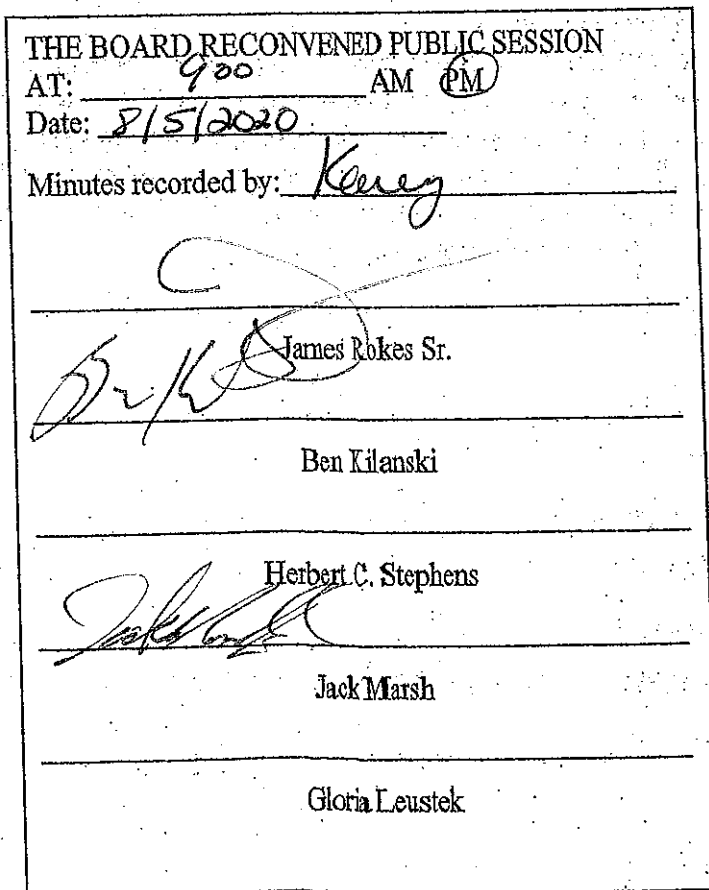 THE BOARD RECONVENED PUBLIC SESSION
AT: 9:00 AM PM
Date: 8/5/2020
Minutes recorded by:
James Rokes Sr.
Ben Kilanski
Herbert C. Stephens
Jack Marsh
Gloria Leustek